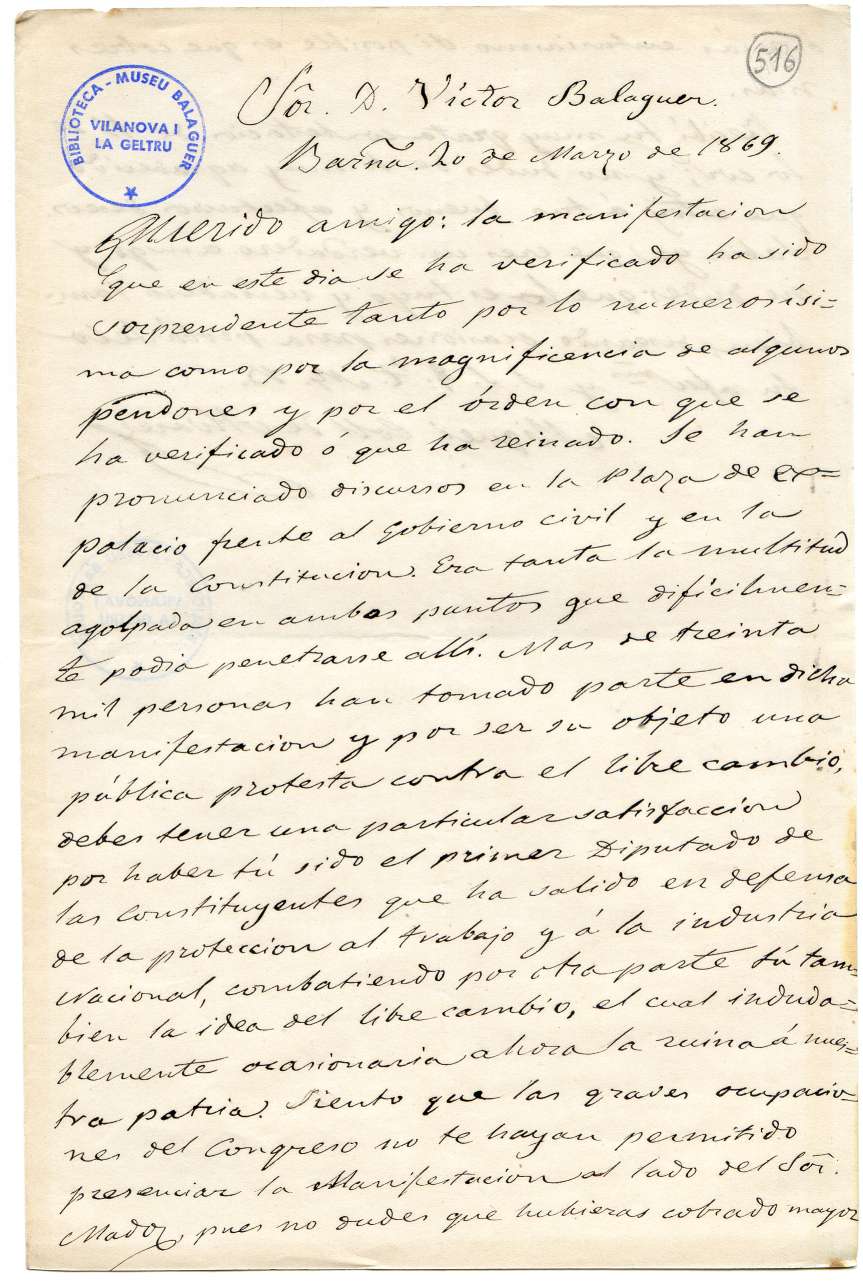 516
BIBLIOTECA - MUSEU BALAGUER
VILANOVA I
LA GELTRU
Sôr. D. Víctor Balaguer.
Barña. 20 de Marzo de 1869.
Querido amigo: la manifestacion
que en este dia se ha verificado ha sido
sorprendente tanto por lo numerosísi=
ma como por la magnificencia de algunos
pendones y por el órden con que se
ha verificado ó que ha reinado. Se han
pronunciado discursos en la Plaza de ex=
palacio frente al Gobierno civil y en la
de la Constitucion. Era tanta la multitud
agolpada en ambos puntos que difícilmen=
te podia penetrarse allí. Mas de treinta
mil personas han tomado parte en dicha
manifestacion y por ser su objeto una
pública protesta contra el libre cambio,
debes tener una particular satisfaccion
por haber tú sido el primer Diputado de
las Constituyentes que ha salido en defensa
de la proteccion al trabajo y á la industria
Nacional, combatiendo por otra parte tú tam=
bien la idea del libre cambio, el cual induda=
blemente ocasionaria ahora la ruina á nues=
tra patria. Siento que las graves ocupacio=
nes del Congreso no te hayan permitido
presenciar la Manifestacion al lado del Sôr.
Madoz, pues no dudes que hubieras cobrado mayor